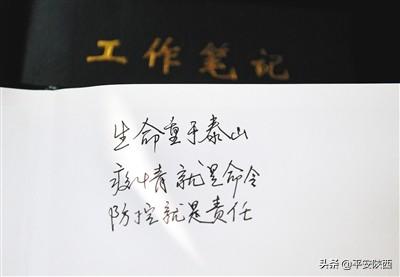 工作笔记
生命重于泰山
疫情就是命令
防控就是责任
头条@平安陕西